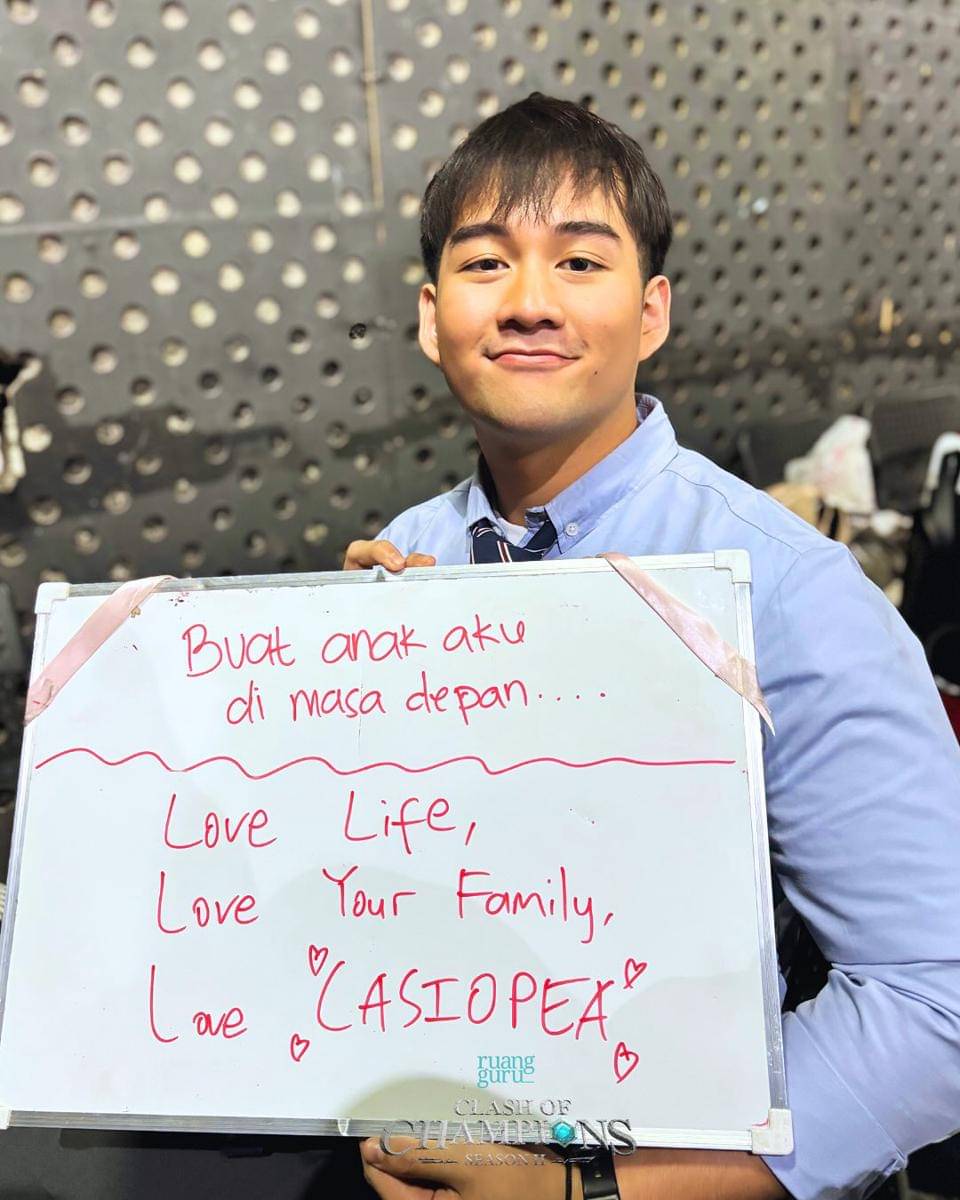 Buat anak aku
di masa depan....
Love Life,
Love Your Family,
Love CASIOPEA
ruang
guru
CLASH OF
CHAMPIONS
SEASON II